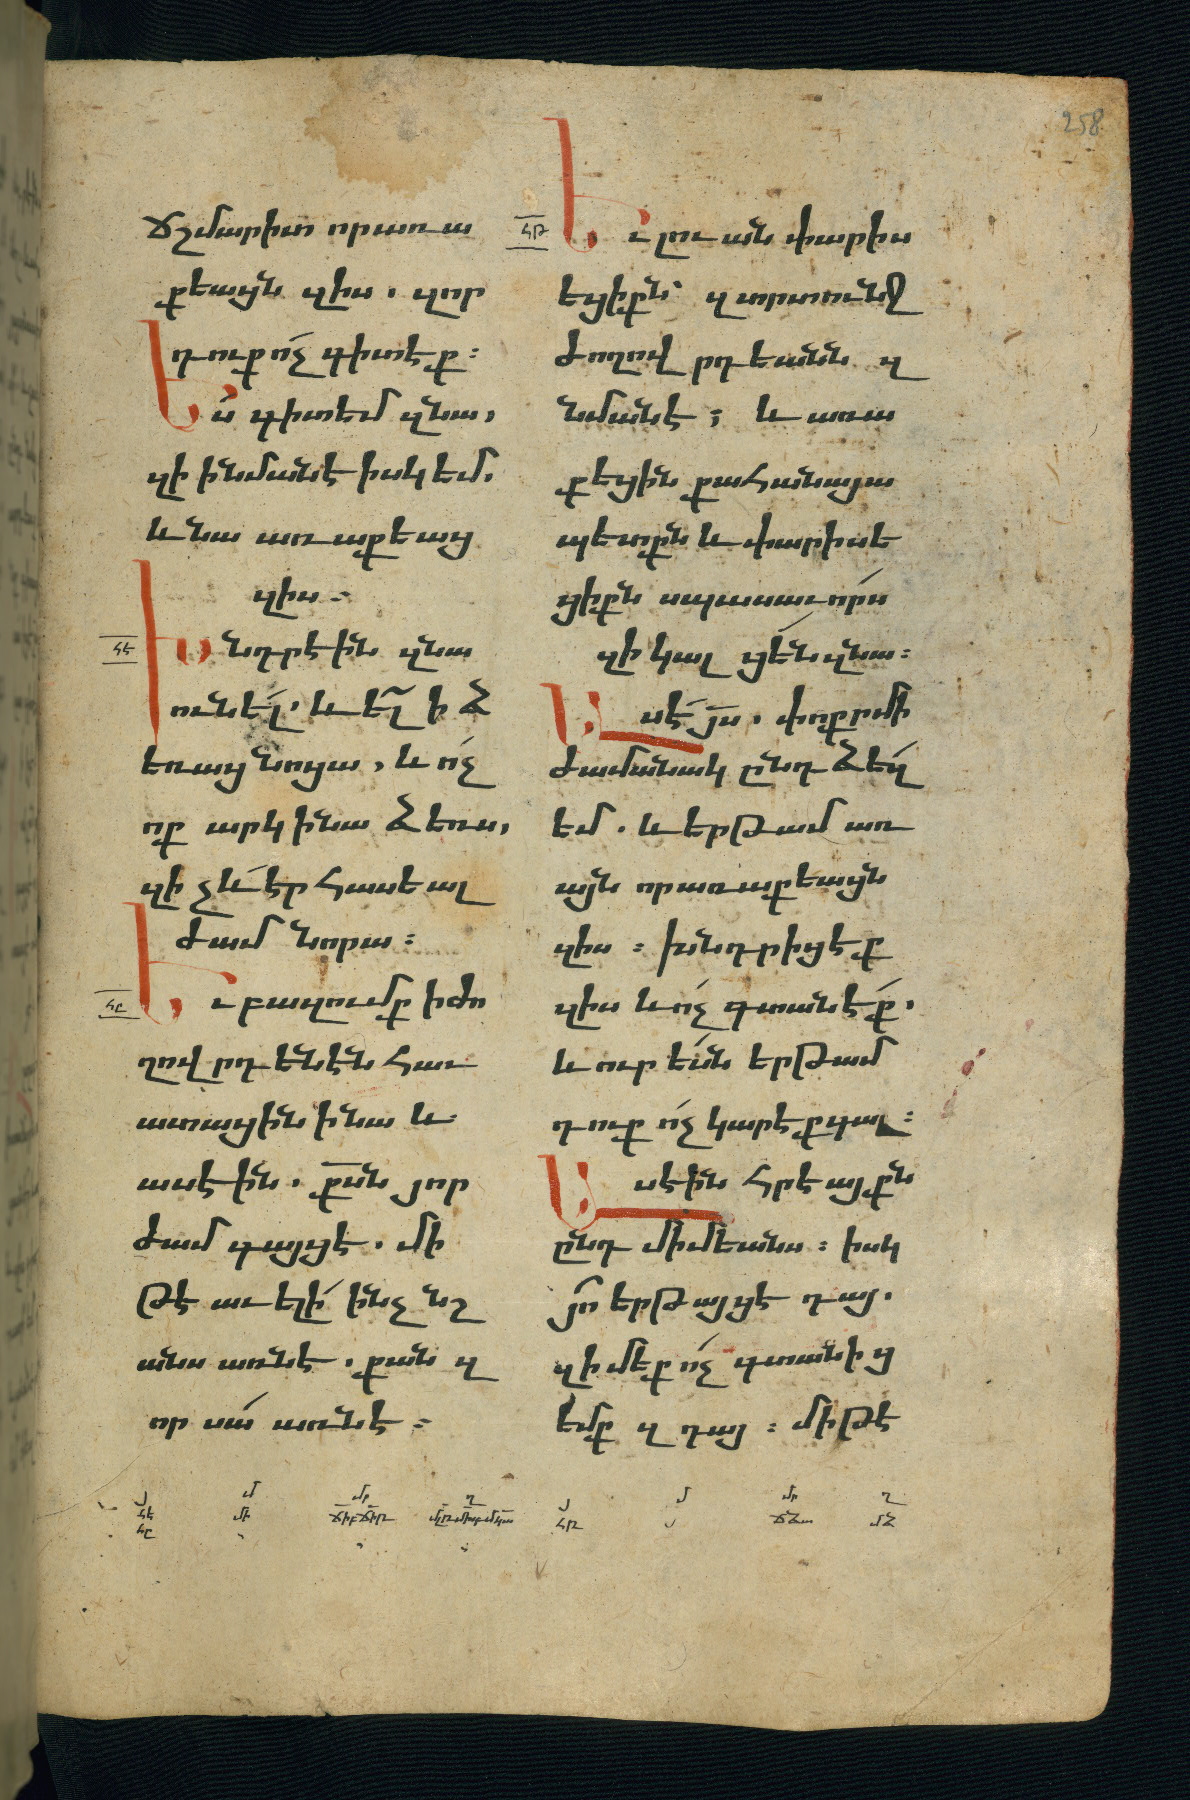 258
ճշմարիտ որառա
քեացն զիս. զոր
դուք ոչ գիտէք։
Ես գիտեմ զնա,
զի ինմանէ իսկ եմ,
և նա առաքեաց
զիս։
ՀԷ
Խնդրէին զնա
ունել. և ել ի Ձ
եռաց նոցա, և ոչ
ոք արկ ինա Ձեռս,
զի չև էր հասեալ
ժամ նորա։
ՀԸ
Եւ բազումք իժո
ղովրդենէն հաւ
ատացին ինա և
ասէին. քսն յոր
ժամ գայցէ. մի
թէ աւելի ինչ նշ
անս առնէ. քան զ
որ սա առնէ։
ՀԹ
Եւ լուան փարիս
եցիքն զտրտունջ
ժողովրդեանն զ
նմանէ։ և առա
քեցին քահանայա
պետքն և փարիսե
ցիքն սպասաւորս
զի կալցեն զնա։
Ասէ յս. փոքրմի
ժամանակ ընդ Ձեզ
եմ. և երթամ առ
այն որառաքեացն
զիս։ խնդրիցէք
զիս և ոչ գտանէք.
և ուր ես երթամ
դուք ոչ կարէք գալ։
Ասէին հրէայքն
ընդ միմեանս։ իսկ
յո երթայցէ դայ.
զի մեք ոչ գտանից
եմք զդայ։ միթէ